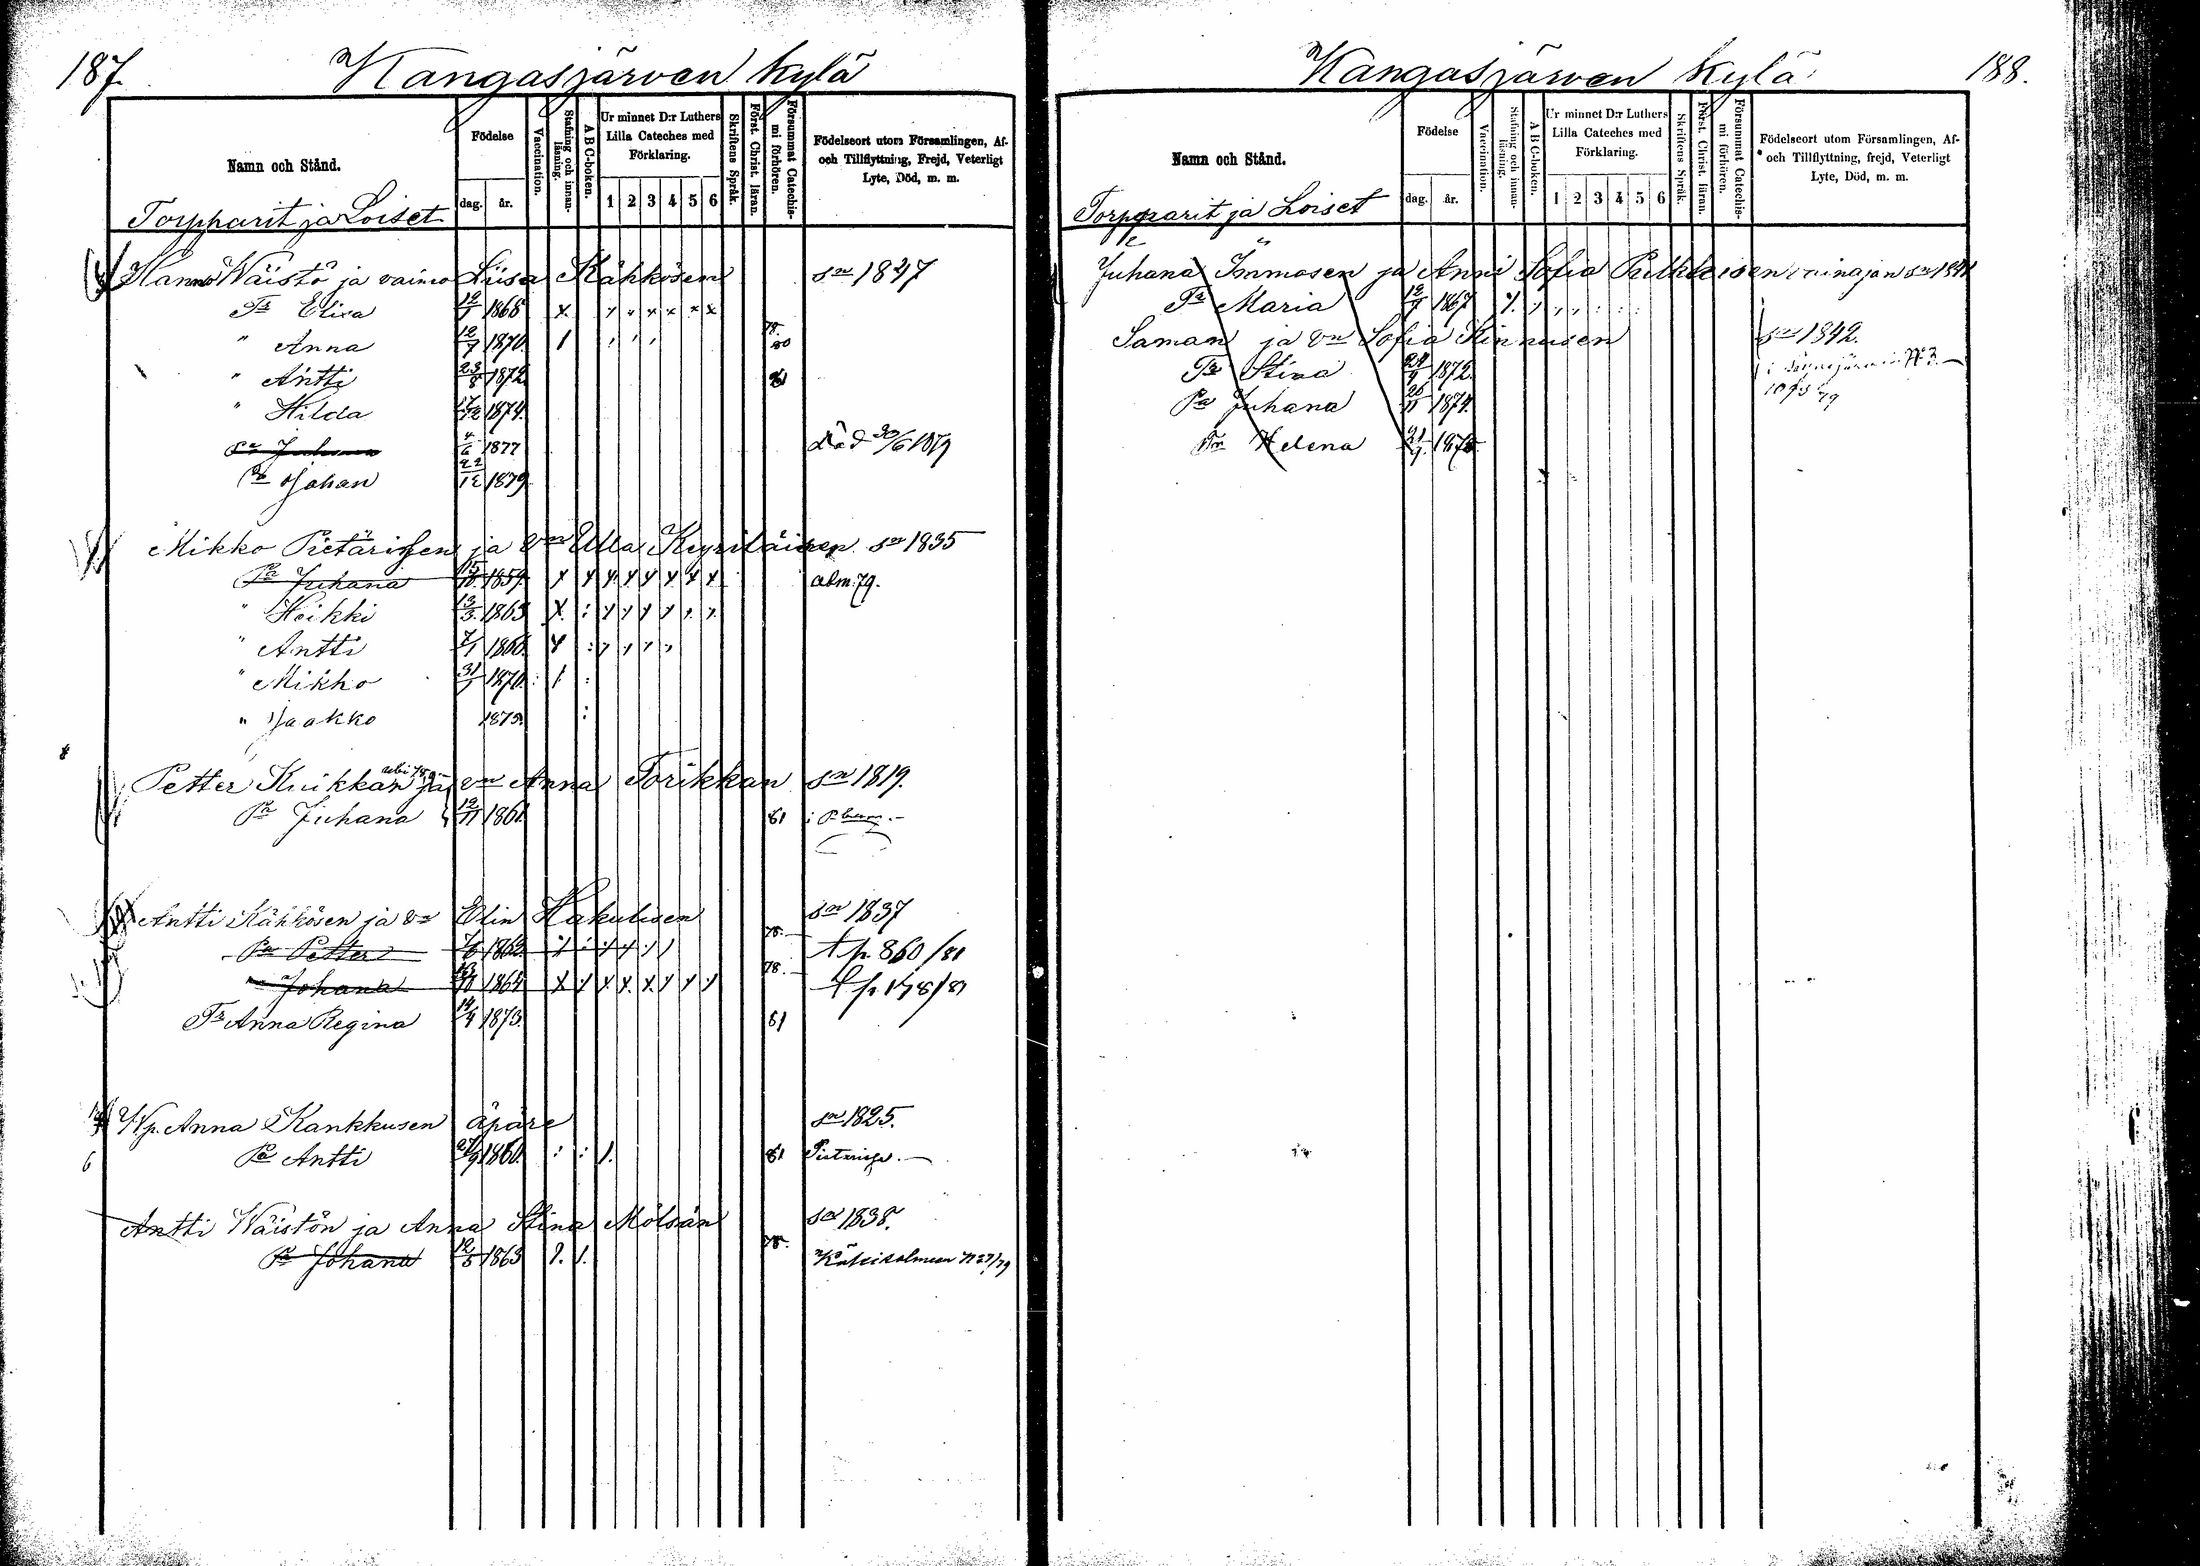 187.
Kangasjärven kylä
Namn och Stånd.
Födelse
dag. år.
Vaccination.
Stafning och innanläsning.
A B C-boken.
Ur minnet D:r Luthers Lilla Cateches med Förklaring.
1 2 3 4 5 6
Skriftens Språk.
Först. Christ. läran.
Försummat Catechismi förhören.
Födelseort utom Församlingen, Af- och Tillflyttning, Frejd, Veterligt Lyte, Död, m. m.
Torpparit ja Loiset
Hannu Wäistö ja vaimo Liisa Kähkösen sn 1847
Tr Elisa 12/1 1868
" Anna 12/7 1870 78. 80
" Antti 23/8 1872 81
" Hilda 17/12 1874.
Pa 4/6 1877 död 30/6 1879
Pa Johan 22/12 1879
Mikko Pietärissen ja vm Ulla Kyyriläisen sn 1835
Pa Juhana 15/10 1859 adm. 79.
" Heikki 13/3 1863
" Antti 7/1 1866
" Mikko 31/7 1870
" Jaakko 1875.
Petter Kuikkan ja vm Anna Torikkan sn 1819.
Pa Juhana 12/11 1861. 81
Antti Kähkösen ja vm Elin Hakulisen sn 1837
Pa Petter 7/6 1863 78. t p. 860/81
Johana 1864 78. t p. 178/81
Tr Anna Regina 14/4 1873. 81
Anna Kankkusen äpäre sn 1825.
Pa Antti 27/9 1860. 81
Antti Wäistön ja Anna Stina Mölsän sn 1838.
Pa Johana 12/5 1863 78.
188.
Kangasjärven kylä
Namn och Stånd.
Födelse
dag. år.
Vaccination.
Stafning och innanläsning.
A B C-boken.
Ur minnet D:r Luthers Lilla Cateches med Förklaring.
1 2 3 4 5 6
Skriftens Språk.
Först. Christ. läran.
Försummat Catechismi förhören.
Födelseort utom Församlingen, Af- och Tillflyttning, frejd, Veterligt Lyte, Död, m. m.
Torpparit ja Loiset
Juhana Immosen ja Anni Sofia Pulkkisen
Tr Maria 12/9 1867
Saman ja vm Sofia Kinnusen sn 1842.
Tr Stina 1872.
Pa Juhana 1874.
Tr Helena